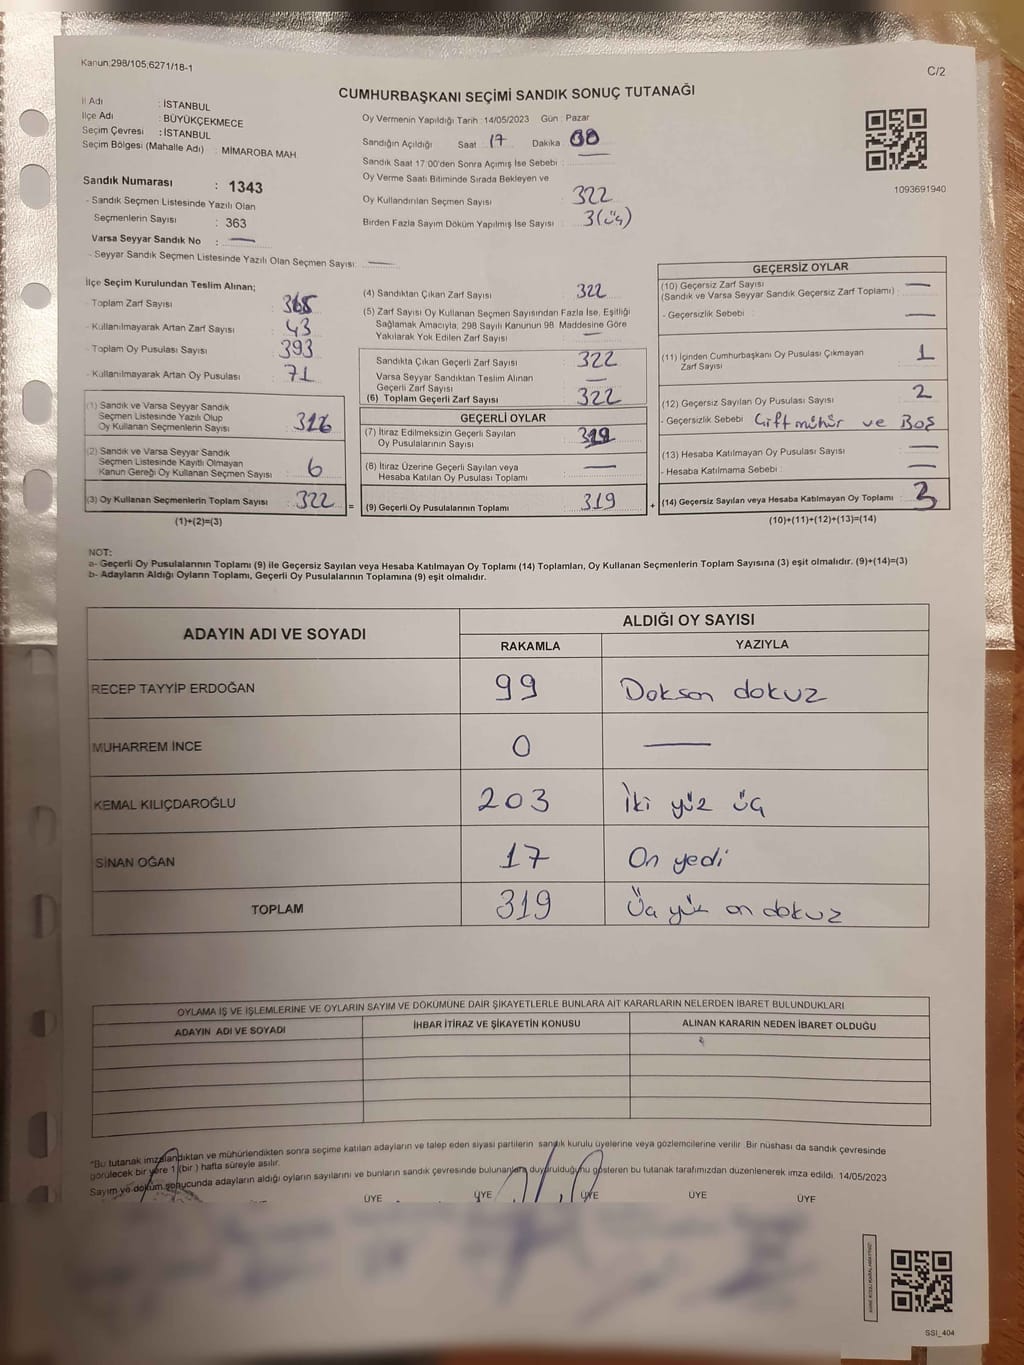 Kanun:298/105;6271/18-1
C/2
CUMHURBAŞKANI SEÇİMİ SANDIK SONUÇ TUTANAĞI
İl Adı : İSTANBUL
İlçe Adı : BÜYÜKÇEKMECE
Seçim Çevresi : İSTANBUL
Seçim Bölgesi (Mahalle Adı) : MİMAROBA MAH.
Sandık Numarası : 1343
- Sandık Seçmen Listesinde Yazılı Olan
Seçmenlerin Sayısı : 363
Varsa Seyyar Sandık No : —
- Seyyar Sandık Seçmen Listesinde Yazılı Olan Seçmen Sayısı: —
Oy Vermenin Yapıldığı Tarih :14/05/2023 Gün : Pazar
Sandığın Açıldığı Saat 17 Dakika 00
Sandık Saat 17:00'den Sonra Açımış İse Sebebi : —
Oy Verme Saati Bitiminde Sırada Bekleyen ve
Oy Kullandırılan Seçmen Sayısı 322
Birden Fazla Sayım Döküm Yapılmış İse Sayısı : 3(üç)
1093691940
İlçe Seçim Kurulundan Teslim Alınan;
- Toplam Zarf Sayısı : 365
- Kullanılmayarak Artan Zarf Sayısı : 43
- Toplam Oy Pusulası Sayısı : 393
- Kullanılmayarak Artan Oy Pusulası : 71
(1) Sandık ve Varsa Seyyar Sandık
Seçmen Listesinde Yazılı Olup
Oy Kullanan Seçmenlerin Sayısı : 316
(2) Sandık ve Varsa Seyyar Sandık
Seçmen Listesinde Kayıtlı Olmayan
Kanun Gereği Oy Kullanan Seçmen Sayısı : 6
(3) Oy Kullanan Seçmenlerin Toplam Sayısı : 322
(1)+(2)=(3)
(4) Sandıktan Çıkan Zarf Sayısı : 322
(5) Zarf Sayısı Oy Kullanan Seçmen Sayısından Fazla İse, Eşitliği
Sağlamak Amacıyla; 298 Sayılı Kanunun 98. Maddesine Göre
Yakılarak Yok Edilen Zarf Sayısı : —
Sandıkta Çıkan Geçerli Zarf Sayısı : 322
Varsa Seyyar Sandıktan Teslim Alınan
Geçerli Zarf Sayısı : —
(6) Toplam Geçerli Zarf Sayısı : 322
GEÇERLİ OYLAR
(7) İtiraz Edilmeksizin Geçerli Sayılan
Oy Pusulalarının Sayısı : 319
(8) İtiraz Üzerine Geçerli Sayılan veya
Hesaba Katılan Oy Pusulası Toplamı : —
= (9) Geçerli Oy Pusulalarının Toplamı : 319
GEÇERSİZ OYLAR
(10) Geçersiz Zarf Sayısı
(Sandık ve Varsa Seyyar Sandık Geçersiz Zarf Toplamı) : —
- Geçersizlik Sebebi : —
(11) İçinden Cumhurbaşkanı Oy Pusulası Çıkmayan
Zarf Sayısı : 1
(12) Geçersiz Sayılan Oy Pusulası Sayısı : 2
- Geçersizlik Sebebi Çift mühür ve Boş
(13) Hesaba Katılmayan Oy Pusulası Sayısı : —
- Hesaba Katılmama Sebebi : —
+ (14) Geçersiz Sayılan veya Hesaba Katılmayan Oy Toplamı : 3
(10)+(11)+(12)+(13)=(14)
NOT:
a- Geçerli Oy Pusulalarının Toplamı (9) ile Geçersiz Sayılan veya Hesaba Katılmayan Oy Toplamı (14) Toplamları, Oy Kullanan Seçmenlerin Toplam Sayısına (3) eşit olmalıdır. (9)+(14)=(3)
b- Adayların Aldığı Oyların Toplamı, Geçerli Oy Pusulalarının Toplamına (9) eşit olmalıdır.
ADAYIN ADI VE SOYADI
ALDIĞI OY SAYISI
RAKAMLA YAZIYLA
RECEP TAYYİP ERDOĞAN 99 Doksan dokuz
MUHARREM İNCE 0 —
KEMAL KILIÇDAROĞLU 203 İki yüz üç
SİNAN OĞAN 17 On yedi
TOPLAM 319 Üç yüz on dokuz
OYLAMA İŞ VE İŞLEMLERİNE VE OYLARIN SAYIM VE DÖKÜMÜNE DAİR ŞİKAYETLERLE BUNLARA AİT KARARLARIN NELERDEN İBARET BULUNDUKLARI
ADAYIN ADI VE SOYADI İHBAR İTİRAZ VE ŞİKAYETİN KONUSU ALINAN KARARIN NEDEN İBARET OLDUĞU
"Bu tutanak imzalandıktan ve mühürlendikten sonra seçime katılan adayların ve talep eden siyasi partilerin sandık kurulu üyelerine veya gözlemcilerine verilir. Bir nüshası da sandık çevresinde
görülecek bir yere 1 (bir) hafta süreyle asılır.
Sayım ve döküm sonucunda adayların aldığı oyların sayılarını ve bunların sandık çevresinde bulunanlara duyurulduğunu gösteren bu tutanak tarafımızdan düzenlenerek imza edildi. 14/05/2023
ÜYE ÜYE ÜYE ÜYE ÜYE
SSI_404